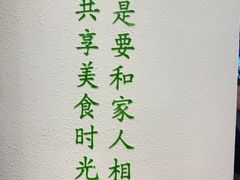 是要和家人相
共享美食时光